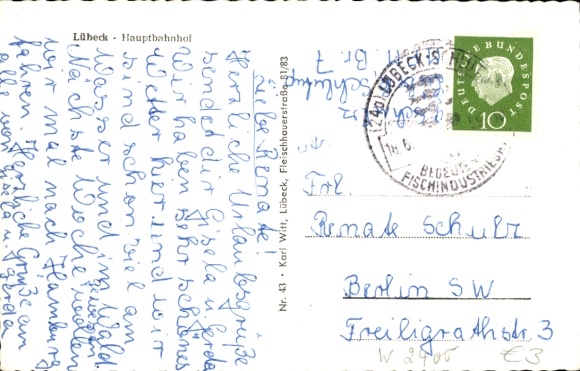 Lübeck - Hauptbahnhof
Liebe Renate!
Herzliche Urlaubsgrüße
sendet dir Gisela u. Gerda
Wir haben sehr schönes
Wetter hier und wir
sind schon viel am
Wasser und im Wald
gewesen.
Nächste Woche wollen
wir mal nach Hamburg
fahren. Herzliche Grüße an
alle von Gisela u. Gerda
Nr. 43 • Karl Witt, Lübeck, Fleischhauerstraße 81/83
Br. 7
(24a) LÜBECK-SCHLUTUP
18.6.
FISCHINDUSTRIE
DEUTSCHE BUNDESPOST
10
Frl.
Renate Schulz
Berlin SW
Freiligrathstr. 3
W 2400
€3